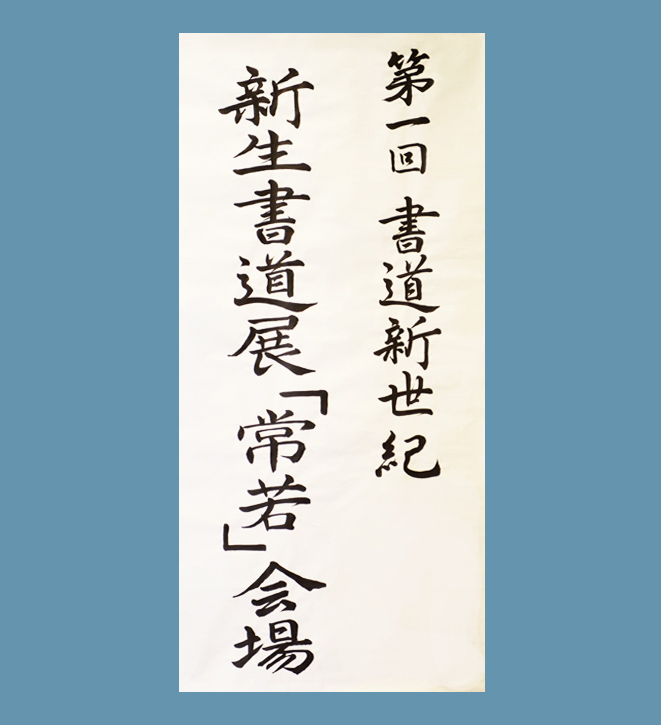 第一回 書道新世紀
新生書道展「常若」会場